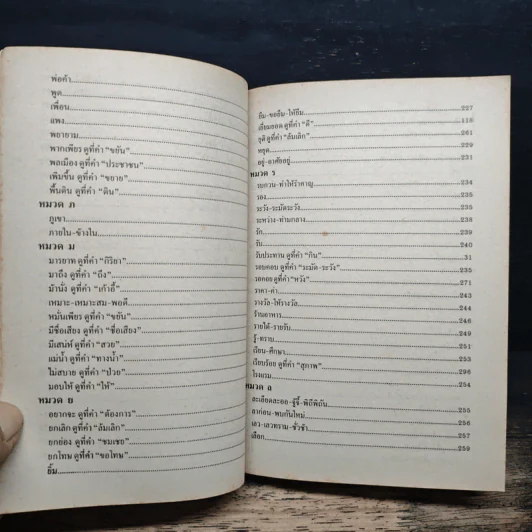 พ่อค้า
พูด
เพื่อน
แพง
พยายาม
พากเพียร ดูที่คำ "ขยัน"
พลเมือง ดูที่คำ "ประชาชน"
เพิ่มขึ้น ดูที่คำ "ขยาย"
พื้นดิน ดูที่คำ "ดิน"
หมวด ภ
ภูเขา
ภายใน-ข้างใน
หมวด ม
มารยาท ดูที่คำ "กิริยา"
มาถึง ดูที่คำ "ถึง"
ม้านั่ง ดูที่คำ "เก้าอี้"
เหมาะ-เหมาะสม-พอดี
หมั่นเพียร ดูที่คำ "ขยัน"
มีชื่อเสียง ดูที่คำ "ชื่อเสียง"
มีเสน่ห์ ดูที่คำ "สวย"
แม่น้ำ ดูที่คำ "ทางน้ำ"
ไม่สบาย ดูที่คำ "ป่วย"
มอบให้ ดูที่คำ "ให้"
หมวด ย
อยากจะ ดูที่คำ "ต้องการ"
ยกเลิก ดูที่คำ "ล้มเลิก"
ยกย่อง ดูที่คำ "ชมเชย"
ยกโทษ ดูที่คำ "ขอโทษ"
ยิ้ม
ยืม-ขอยืม-ให้ยืม 227
เยี่ยมยอด ดูที่คำ "ดี" 118
ยุติ ดูที่คำ "ล้มเลิก" 261
หยุด 229
อยู่-อาศัยอยู่ 231
หมวด ร
รบกวน-ทำให้รำคาญ 234
รอง 235
ระวัง-ระมัดระวัง 235
ระหว่าง-ท่ามกลาง 238
รัก 239
รับ 240
รับประทาน ดูที่คำ "กิน" 31
รอบคอบ ดูที่คำ "ระมัด-ระวัง" 235
รอคอย ดูที่คำ "หวัง" 271
ราคา-ค่า 243
รางวัล-ให้รางวัล 244
ร้านอาหาร 246
รายได้-รายรับ 249
รู้-ทราบ 251
เรียน-ศึกษา 259
เรียบร้อย ดูที่คำ "สุภาพ" 296
โรงแรม 254
หมวด ล
ละเอียดละออ-จู้จี้-พิถีพิถัน 255
ลาก่อน-พบกันใหม่ 256
เลว-เลวทราม-ชั่วช้า 257
เลือก 259